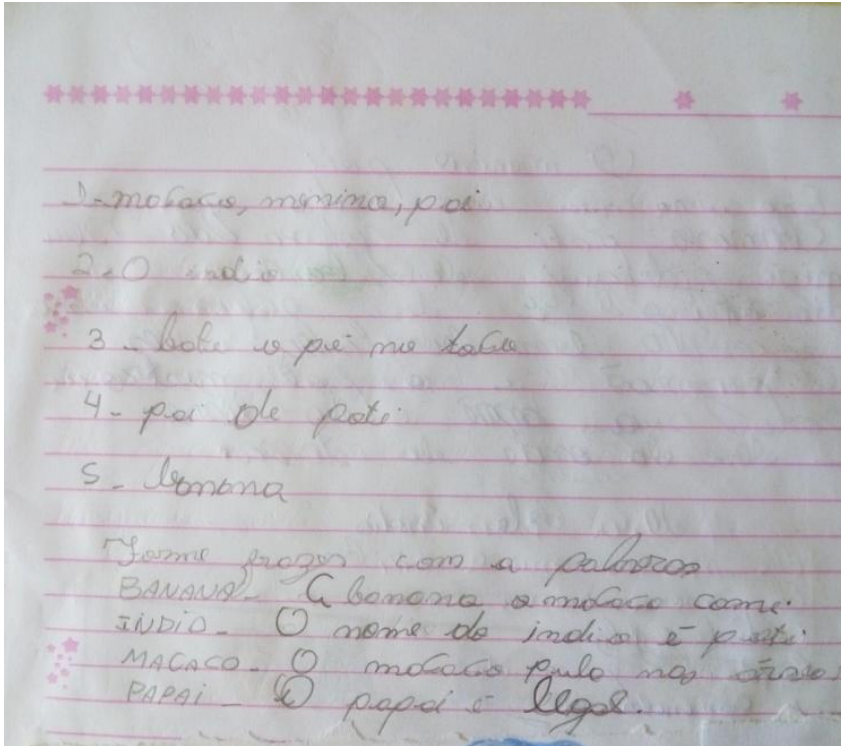 1- macaco, menina, pai
2-O indio
3- bate o pé no taco
4- pai de poti
5- banana
Forme frazes com a palavras
BANANA- A banana o macaco come.
INDIO- O nome do indio é poti.
MACACO- O macaco pula nas
PAPAI- O papai é legal.